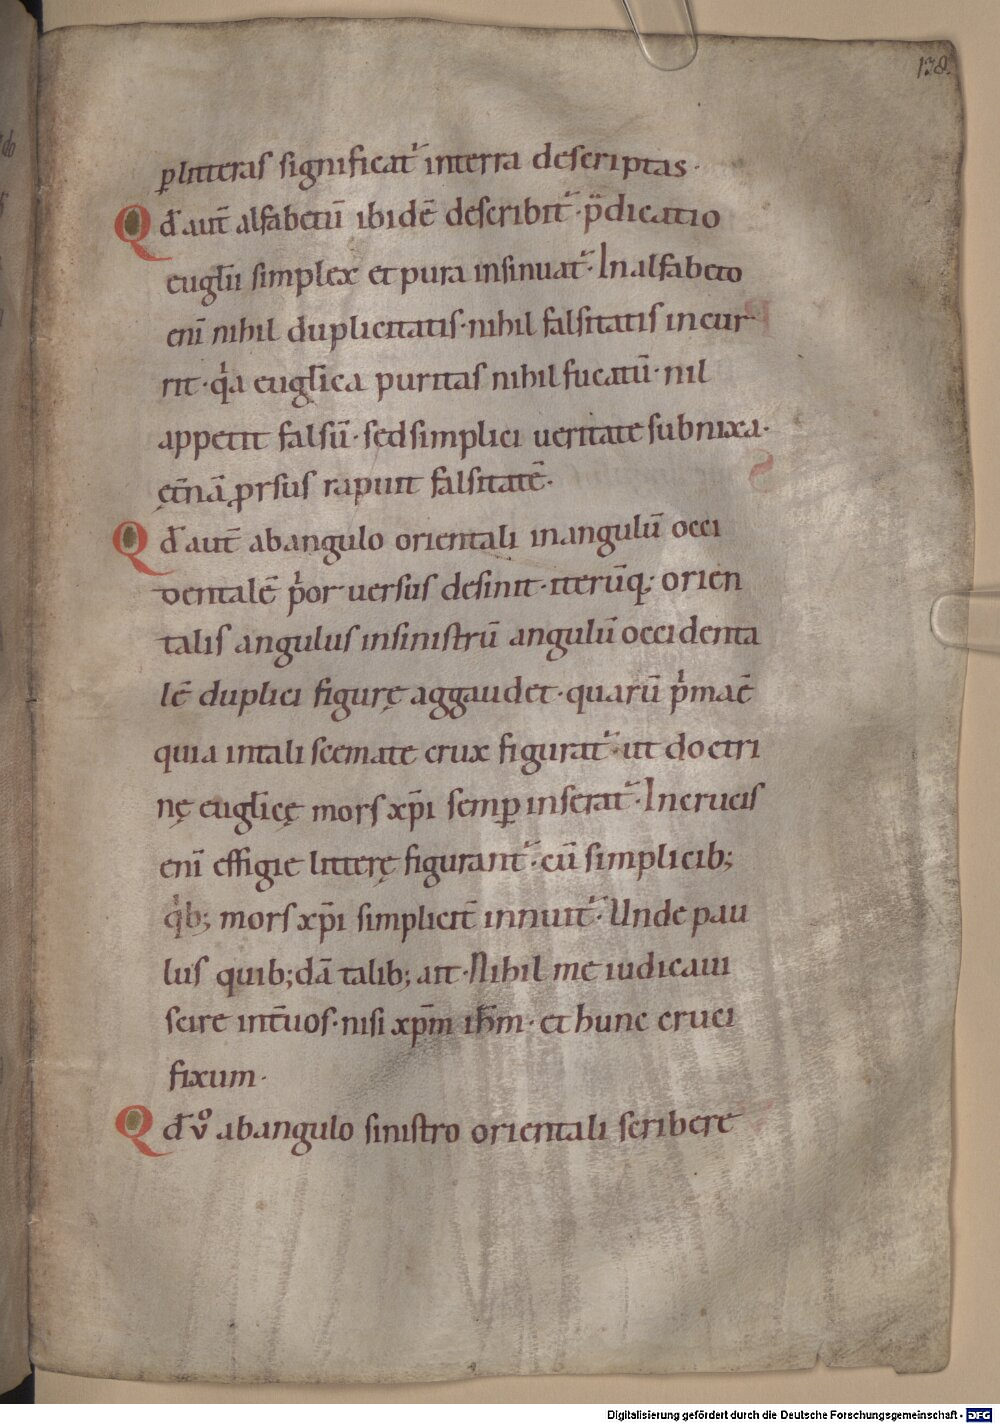 138.
ꝑ litteras significat᷑ in terra descriptas·
Qđ aut̄ alfabetū ibidē describit᷑· p̄dicatio
euglii simplex et pura insinuat᷑· In alfabeto
eni̅ nihil duplicitatis· nihil falsitatis incur
rit· qͥa euglica puritas nihil fucatū· nil
appetit falsū· sed simplici ueritate subnixa·
ęt̄nā ꝓrsus rapuit falsitatē·
Qđ aut̄ ab angulo orientali in angulū occi
dentalē pͥor uersus desinit· iterūq; orien
talis angulus in sinistrū angulū occidenta
lē duplici figurę aggaudet· quarū pͥma ē
quia in tali scemate crux figurat᷑· ut doctri
nę euglicę mors xp̄i semꝑ inserat᷑· In crucis
eni̅ effigie litterę figurant᷑· cū simplicib;
qͥb; mors xp̄i simplicit̄ innuit᷑· Unde pau
lus quib;dā talib; ait· Nihil me iudicaui
scire int̄ uos· nisi xp̄m ih̄m· et hunc cruci
fixum·
Qđ vͦ ab angulo sinistro orientali scribere
Digitalisierung gefördert durch die Deutsche Forschungsgemeinschaft - DFG